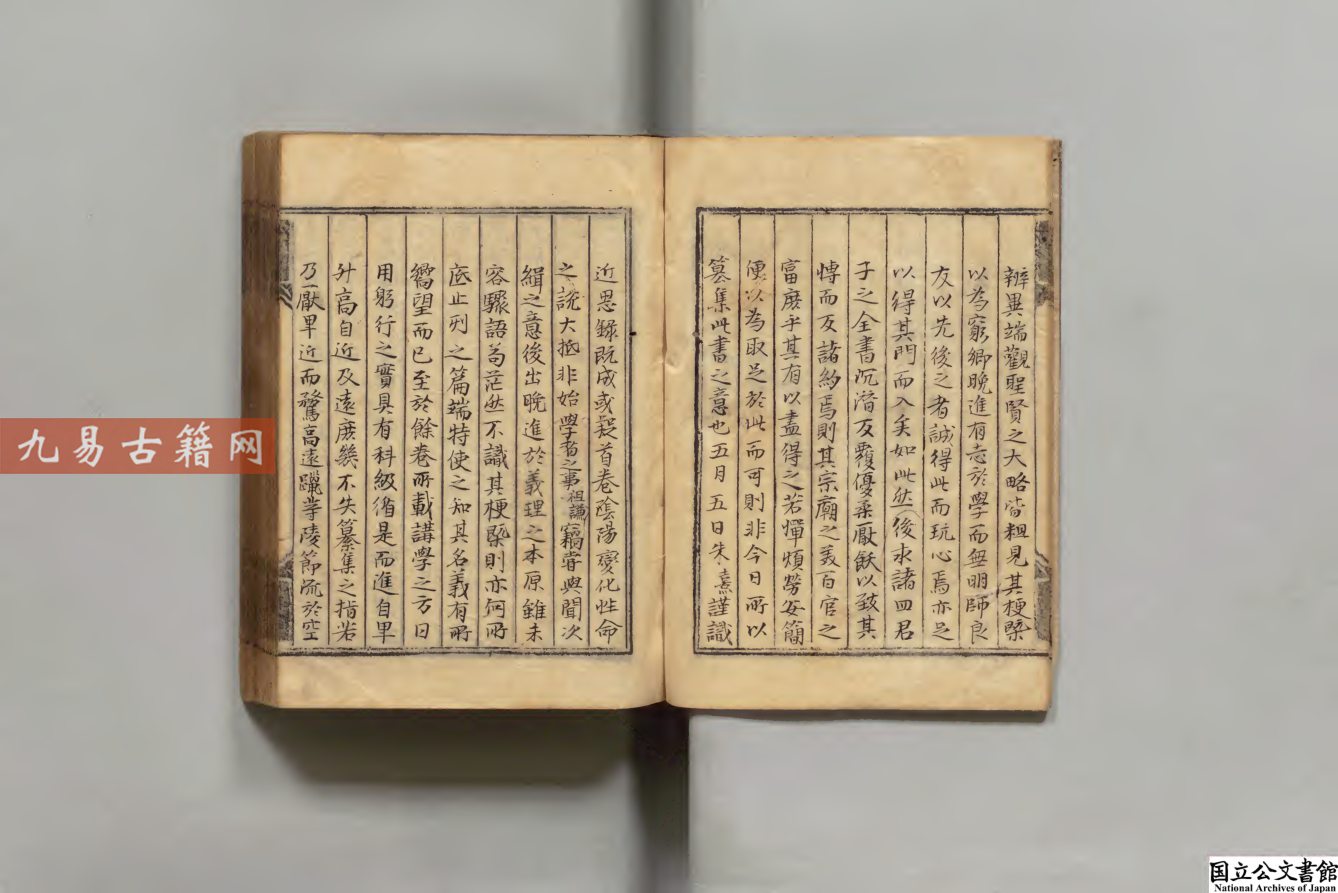 辨異端觀聖賢之大略皆粗見其梗槩
以為窮鄉晚進有志於學而無明師良
友以先後之者誠得此而玩心焉亦足
以得其門而入矣如此然後求諸四君
子之全書沉潛反覆優柔厭飫以致其
博而反諸約焉則其宗廟之美百官之
富庶乎其有以盡得之若憚煩勞安簡
便以為取足於此而可則非今日所以
篡集此書之意也五月五日朱熹謹識
近思錄既成或疑首卷陰陽變化性命
之說大抵非始學者之事祖謙竊甞與聞次
緝之意後出晚進於義理之本原雖未
容驟語苟茫然不識其梗槩則亦何所
底止列之篇端特使之知其名義有所
嚮望而已至於餘卷所載講學之方日
用躬行之實具有科級循是而進自卑
升高自近及遠庶幾不失纂集之指若
乃厭卑近而騖高遠躐等陵節流於空
九易古籍网
国立公文書館
National Archives of Japan